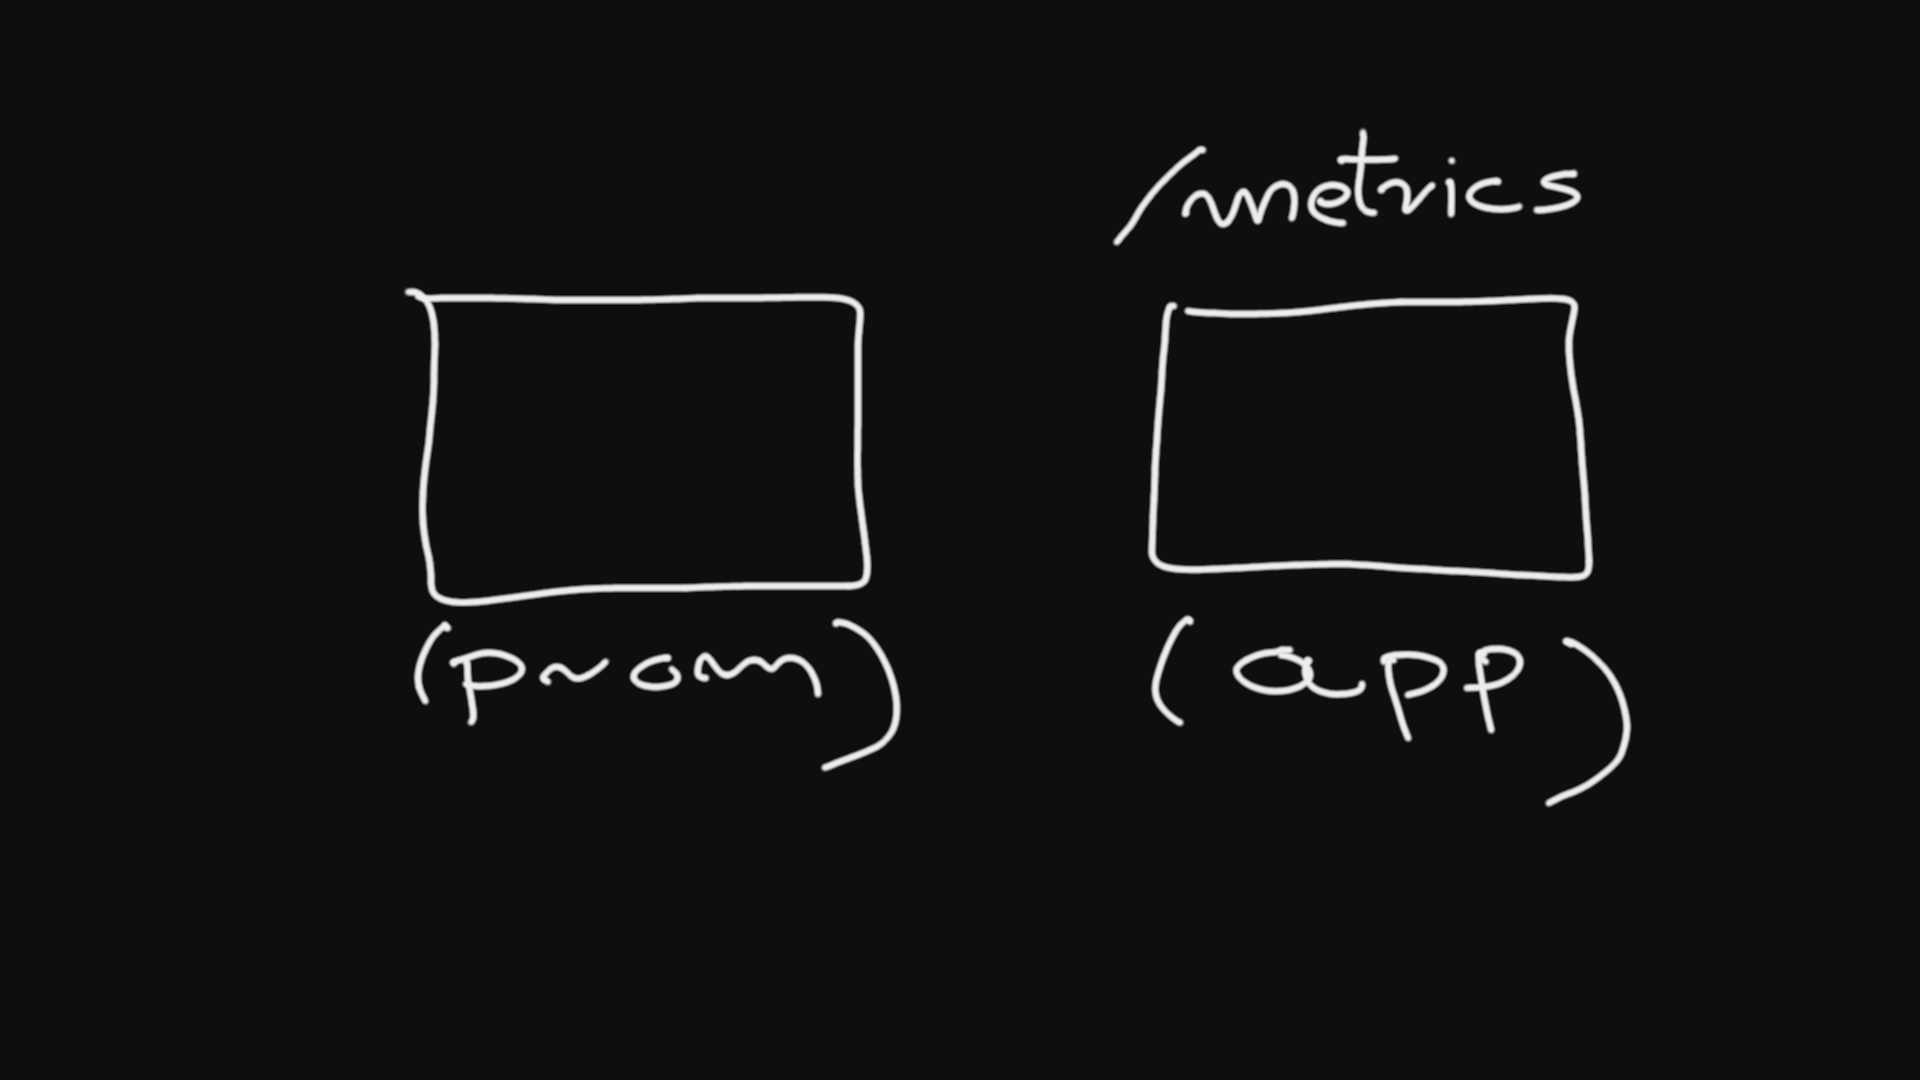 /metrics
(prom)
(app)